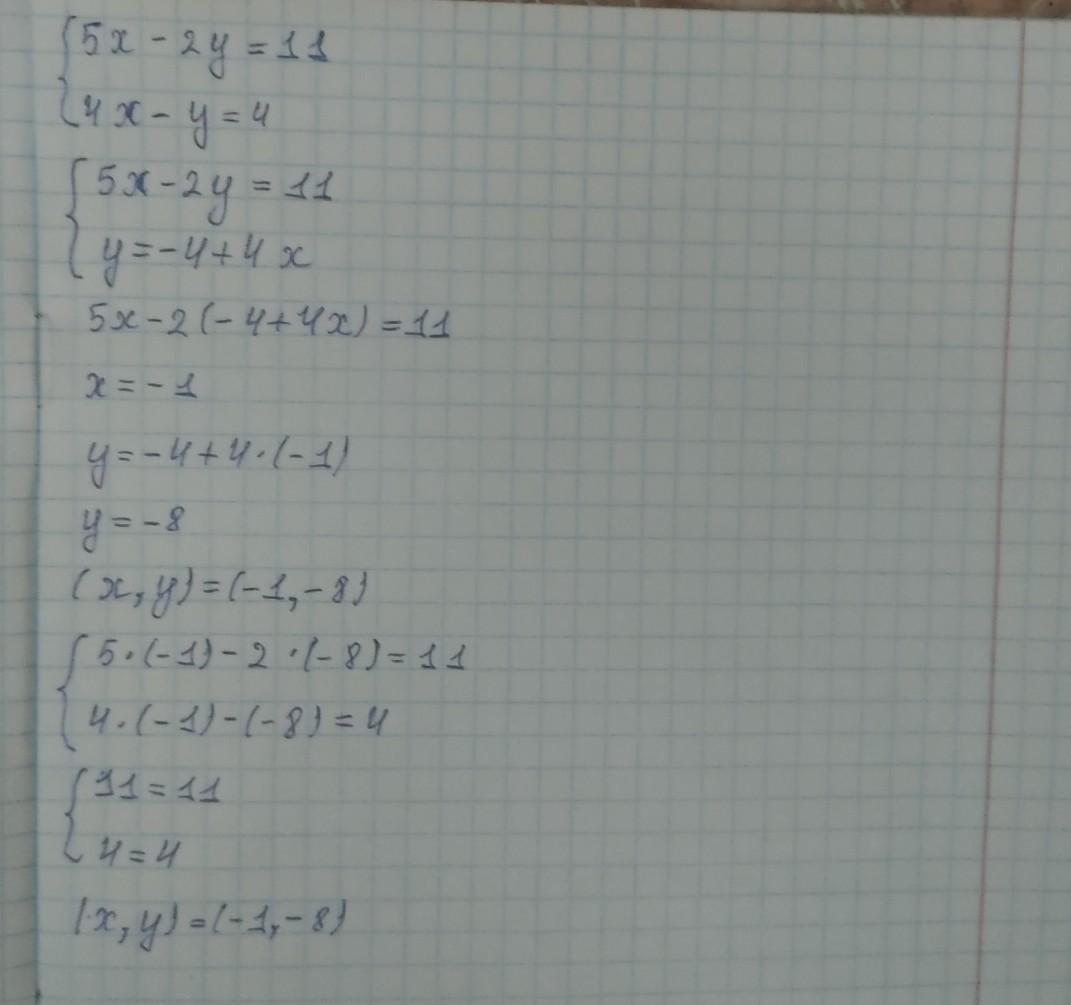 {5x - 2y = 11
{4x - y = 4
{5x - 2y = 11
{y = -4 + 4x
5x - 2(-4 + 4x) = 11
x = -1
y = -4 + 4·(-1)
y = -8
(x, y) = (-1, -8)
{5·(-1) - 2·(-8) = 11
{4·(-1) - (-8) = 4
{11 = 11
{4 = 4
(x, y) = (-1, -8)